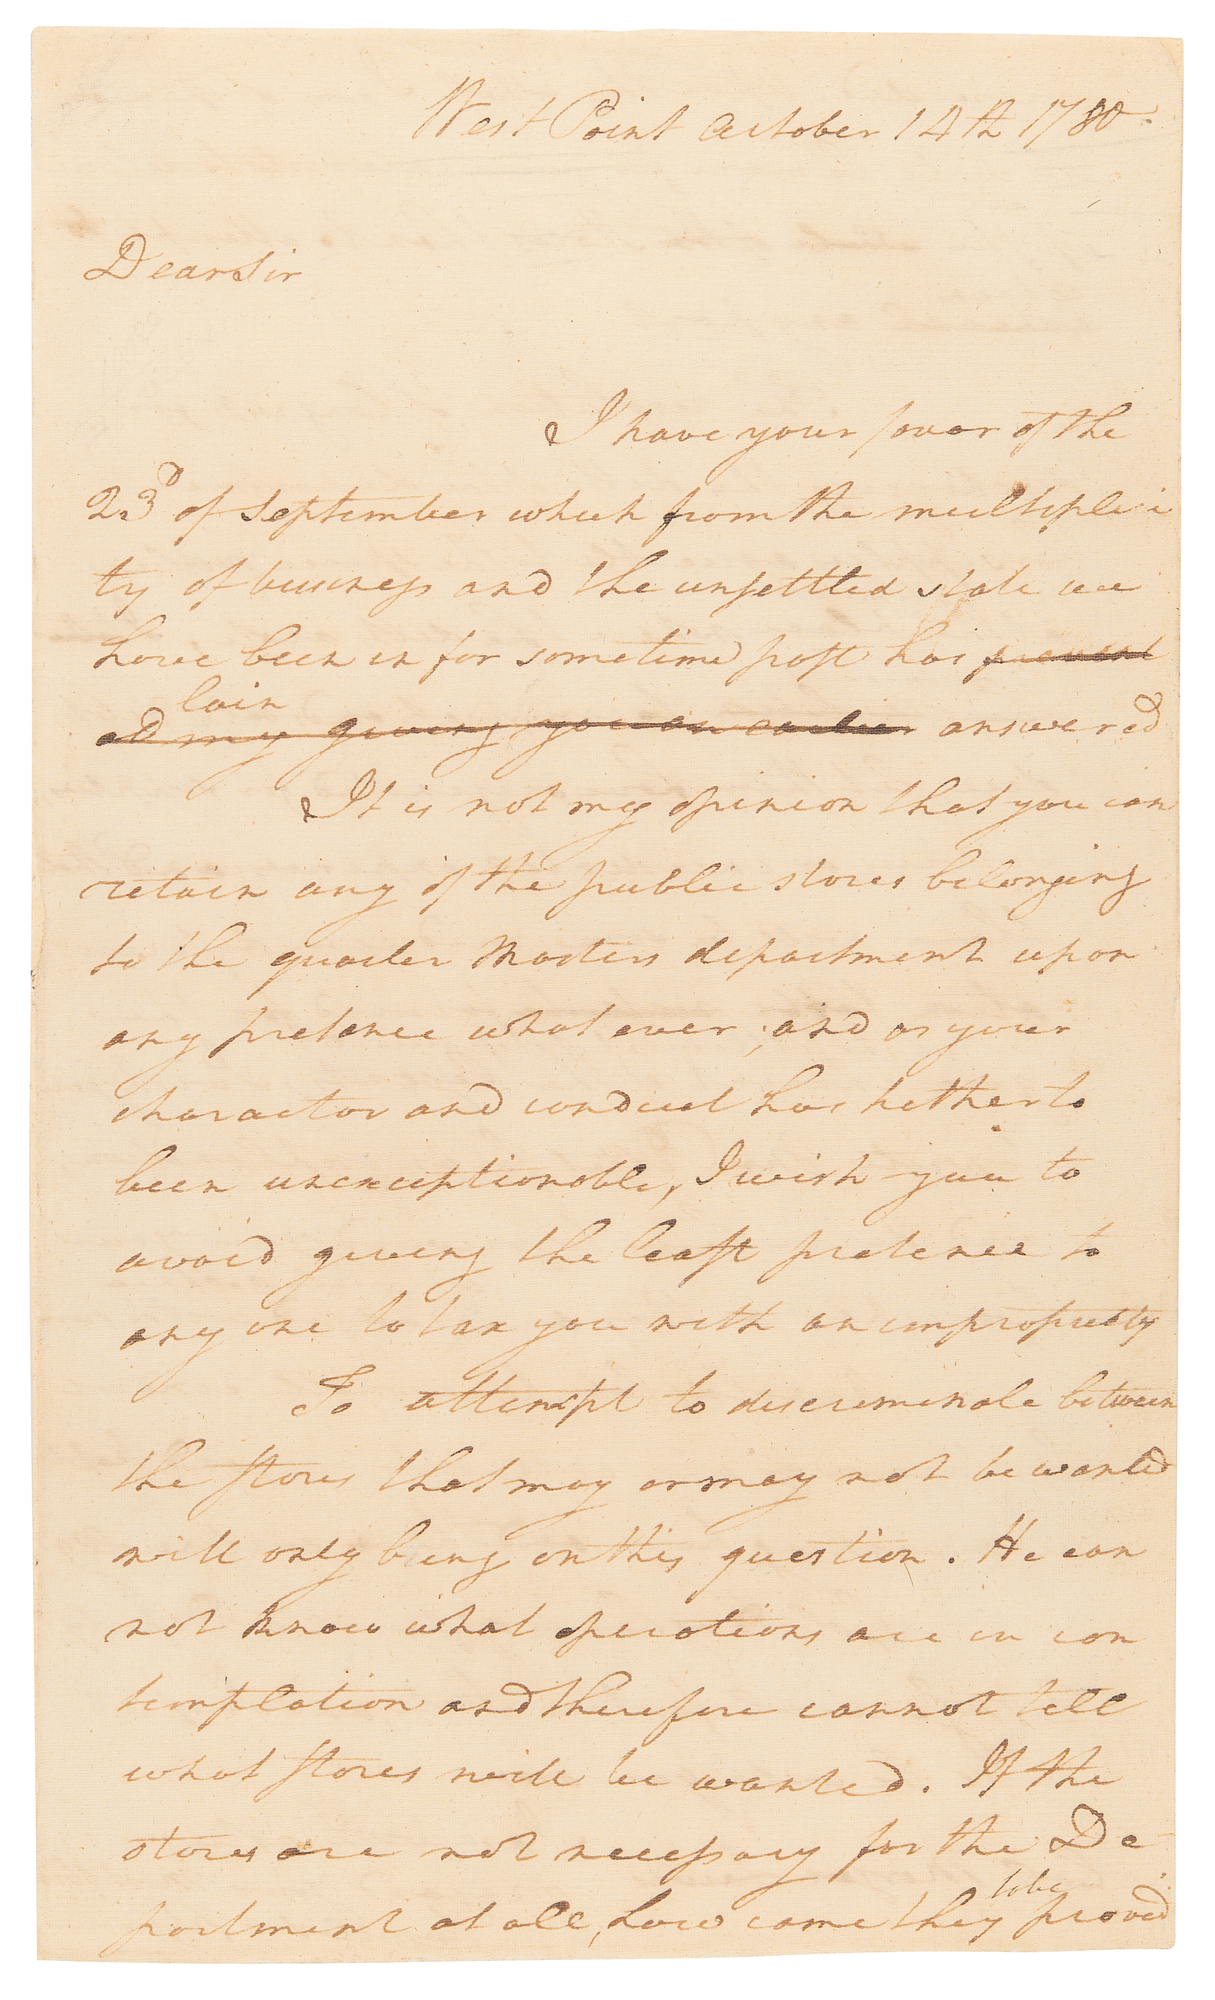 West Point October 14th 1780.
Dear Sir
I have your favor of the
23d of September which from the multiplici
ty of business and the unsettled state we
have been in for sometime past has prevent
lain
ed my giving you an earlier answered
It is not my opinion that you can
retain any of the public stores belonging
to the quarter Masters department upon
any pretence what ever; and as your
charactor and conduct has hetherto
been unexceptionable, I wish you to
avoid giving the least pretence to
any one to tax you with an impropriety
To attempt to discriminate between
the stores that may or may not be wanted
will only bring on this question. He can
not know what operations are in con
templation and therefore cannot tell
what stores will be wanted. If the
stores are not necessary for the De
to be
partment at all, how came they provid